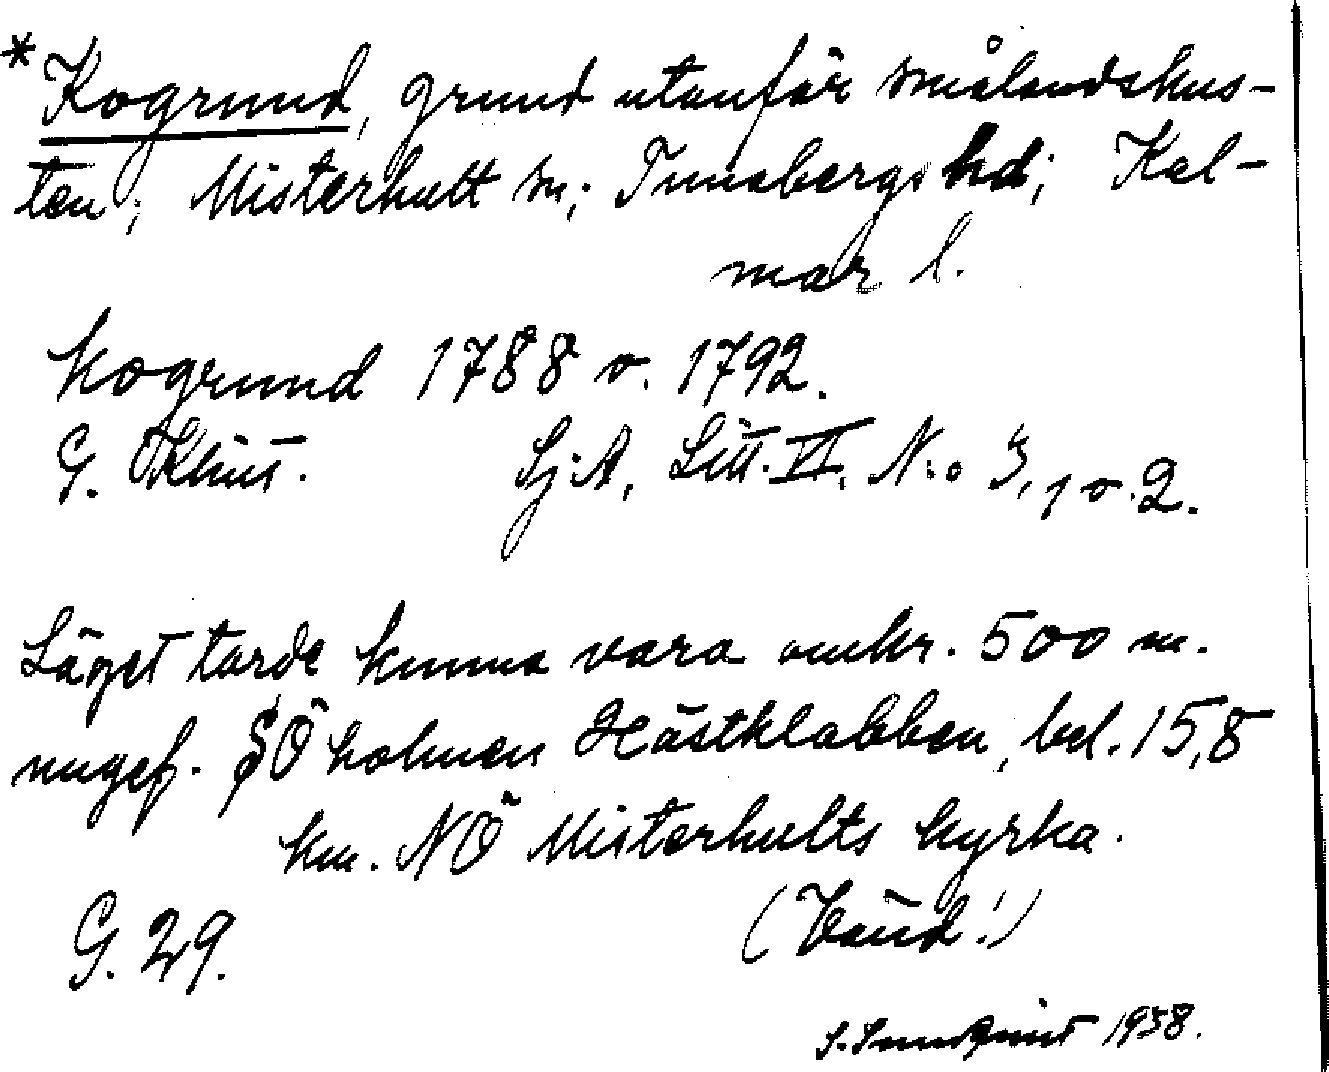 *Kogrund, grund utanför smålandskus-
ten; Misterhult sn; Tunabergs hd; Kal-
mar l.
Kogrund 1788 o. 1792.
G. Klint. Sj.A, Litt. VI, N:o 3, 1 o. 2.
Läget torde kunna vara omkr. 500 m.
ungef. SÖ holmen Hästklabben, bel. 15,8
km. NÖ Misterhults kyrka.
G. 29. (Vänd!)
S. 1938.